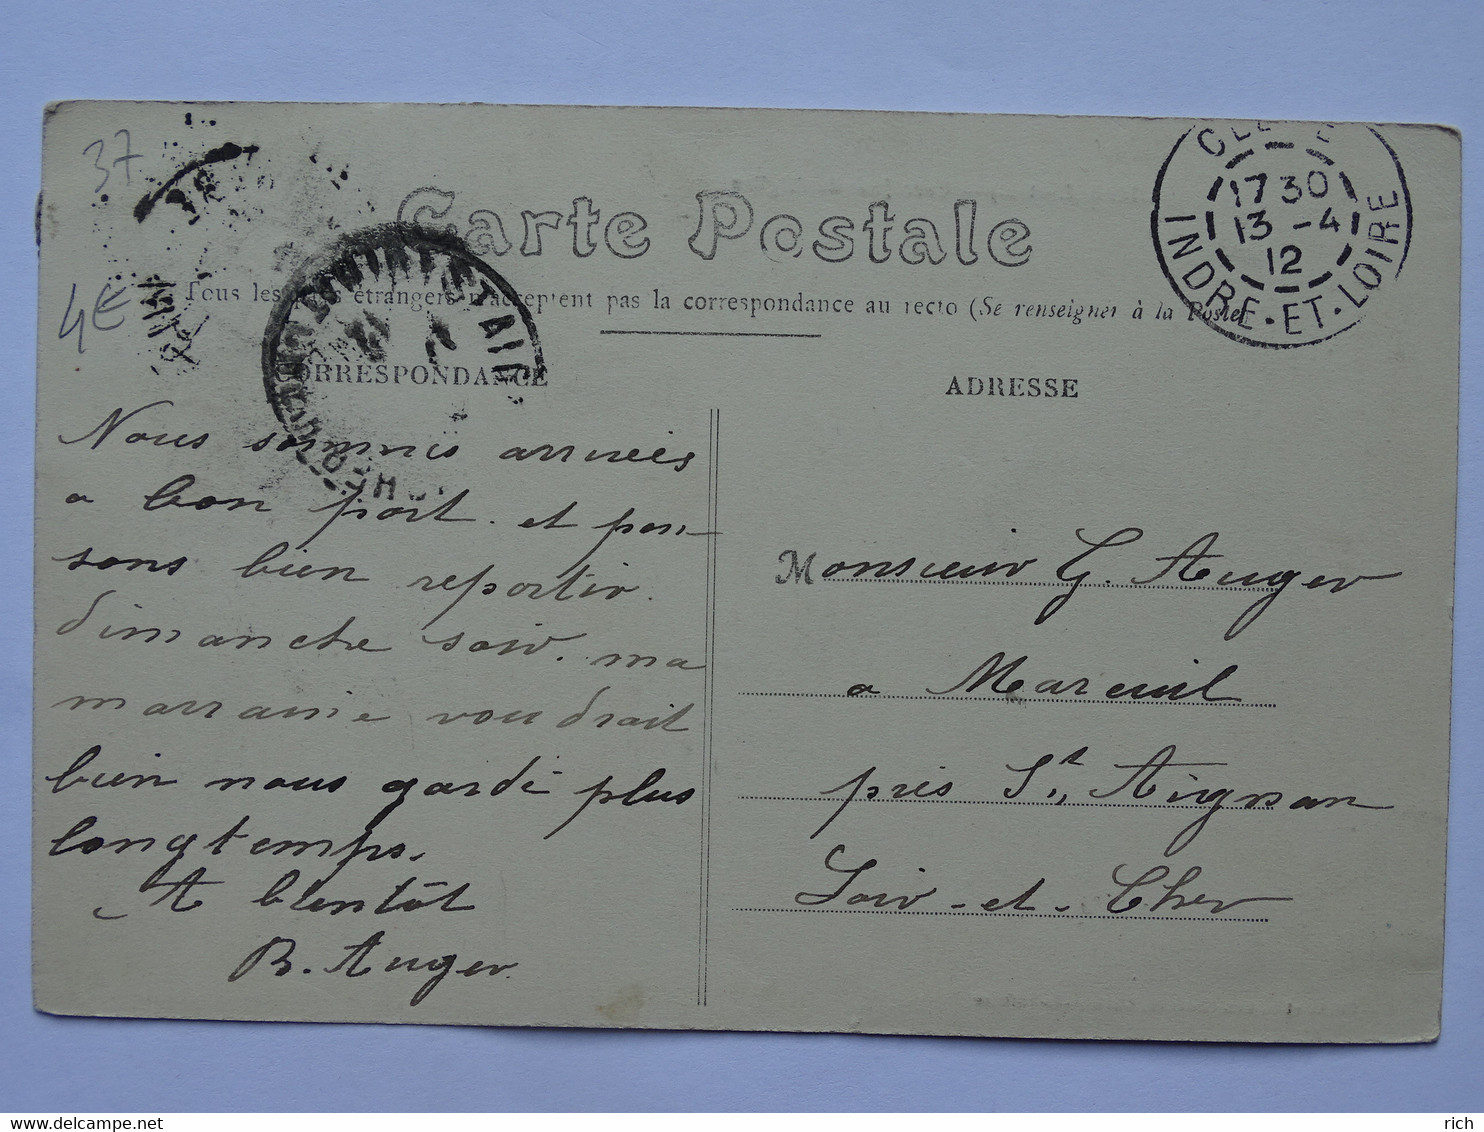 37
4€
Carte Postale
Tous les pays étrangers n'acceptent pas la correspondance au recto (Se renseigner à la Poste)
CORRESPONDANCE
Nous sommes arrivés
a bon port. et pen-
sons bien repartir.
dimanche soir. ma
marraine voudrait
bien nous gardé plus
longtemps.
A bientôt
B. Auger
17 30
13 -4
12
INDRE-ET-LOIRE
ADRESSE
Monsieur G. Auger
a Mareuil
près St. Aignan
Loir-et-Cher
www.delcampe.net
rich